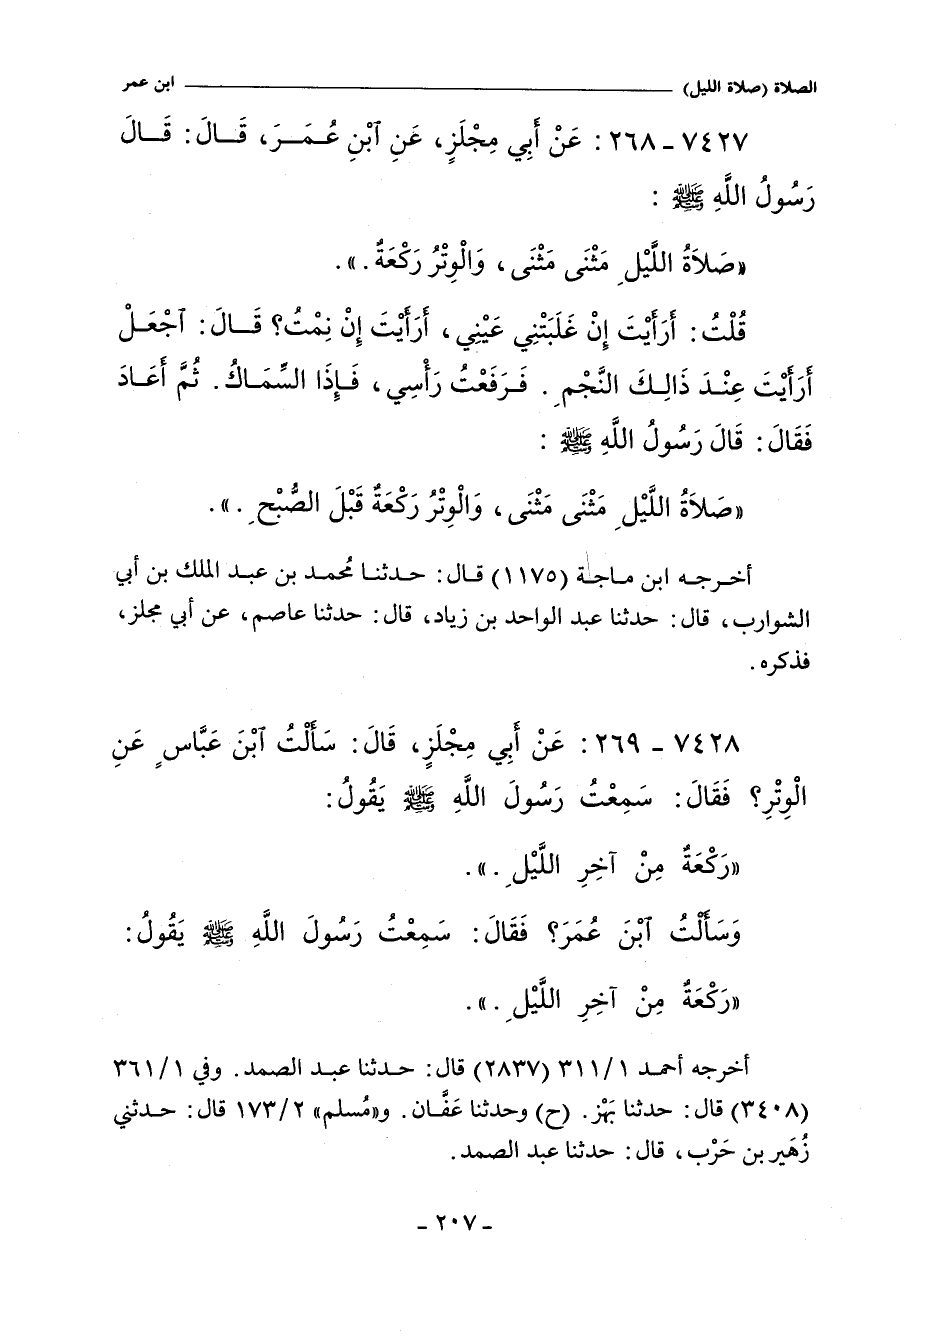 الصلاة (صلاة الليل) ابن عمر
٧٤٢٧ - ٢٦٨ : عَنْ أَبِي مِجْلَزٍ، عَنِ ٱبْنِ عُمَرَ، قَالَ: قَالَ
رَسُولُ اللَّهِ ﷺ :
«صَلاَةُ اللَّيْلِ مَثْنَى مَثْنَى، وَالْوِتْرُ رَكْعَةٌ.».
قُلْتُ: أَرَأَيْتَ إِنْ غَلَبَتْنِي عَيْنِي، أَرَأَيْتَ إِنْ نِمْتُ؟ قَالَ: ٱجْعَلْ
أَرَأَيْتَ عِنْدَ ذَالِكَ النَّجْمِ. فَرَفَعْتُ رَأْسِي، فَإِذَا السِّمَاكُ. ثُمَّ أَعَادَ
فَقَالَ: قَالَ رَسُولُ اللَّهِ ﷺ :
«صَلاَةُ اللَّيْلِ مَثْنَى مَثْنَى، وَالْوِتْرُ رَكْعَةٌ قَبْلَ الصُّبْحِ.».
أخرجه ابن ماجة (١١٧٥) قال: حدثنا مُحمد بن عبد الملك بن أبي
الشوارب، قال: حدثنا عبد الواحد بن زياد، قال: حدثنا عاصم، عن أبي مجلز،
فذكره.
٧٤٢٨ - ٢٦٩ : عَنْ أَبِي مِجْلَزٍ، قَالَ: سَأَلْتُ ٱبْنَ عَبَّاسٍ عَنِ
الْوِتْرِ؟ فَقَالَ: سَمِعْتُ رَسُولَ اللَّهِ ﷺ يَقُولُ:
«رَكْعَةٌ مِنْ آخِرِ اللَّيْلِ.».
وَسَأَلْتُ ٱبْنَ عُمَرَ؟ فَقَالَ: سَمِعْتُ رَسُولَ اللَّهِ ﷺ يَقُولُ:
«رَكْعَةٌ مِنْ آخِرِ اللَّيْلِ.».
أخرجه أحمد ٣١١/١ (٢٨٣٧) قال: حدثنا عبد الصمد. وفي ٣٦١/١
(٣٤٠٨) قال: حدثنا بَهْز. (ح) وحدثنا عَفَّان. و«مُسلم» ١٧٣/٢ قال: حدثني
زُهَير بن حَرْب، قال: حدثنا عبد الصمد.
- ٢٠٧ -